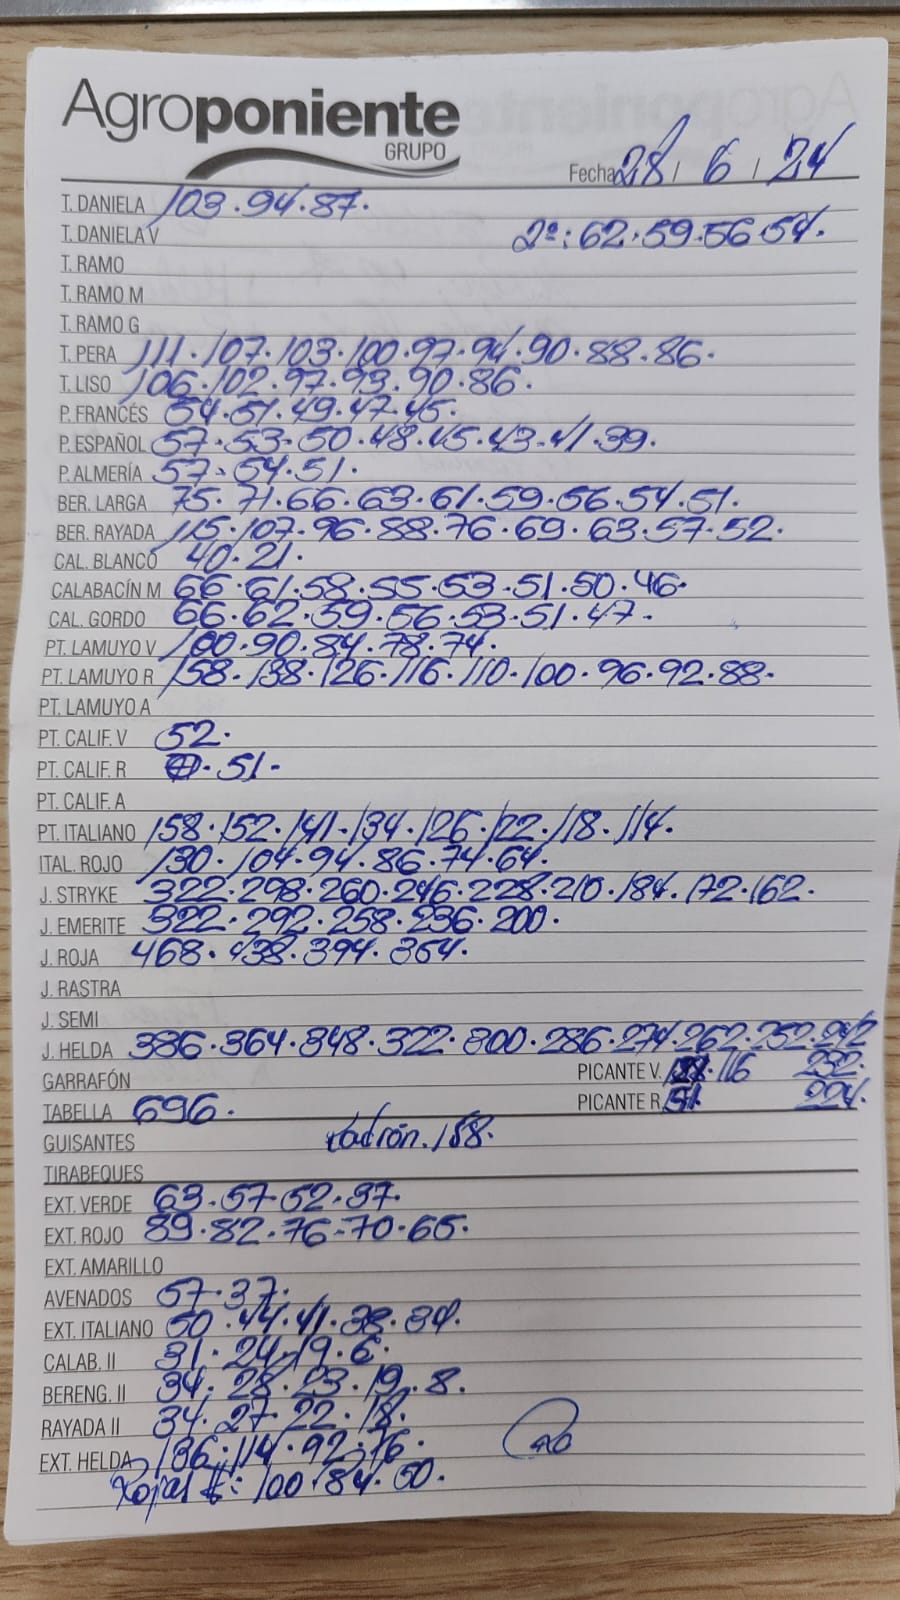 Agroponiente
GRUPO
Fecha 28 / 6 / 24
T. DANELA 103.94.87.
T. DANIELA V 2ª: 62.59.56.54.
T. RAMO
T. RAMO M
T. RAMO G
T. PERA 111.107.103.100.97.94.90.88.86.
T. LISO 106.102.97.93.90.86.
P. FRANCÉS 54.51.49.47.45.
P. ESPAÑOL 57.53.50.48.45.43.41.39.
P. ALMERÍA 57.54.51.
BER. LARGA 75.71.66.63.61.59.56.54.51.
BER. RAYADA 115.107.96.88.76.69.63.57.52.
CAL. BLANCO 40.21.
CALABACÍN M 66.61.58.55.53.51.50.46.
CAL. GORDO 66.62.59.56.53.51.47.
PT. LAMUYO V 100.90.84.78.74.
PT. LAMUYO R 158.138.126.116.110.100.96.92.88.
PT. LAMUYO A
PT. CALIF. V 52.
PT. CALIF. R 51.
PT. CALIF. A
PT. ITALIANO 158.152.141.134.126.122.118.114.
ITAL. ROJO 130.104.94.86.74.64.
J. STRYKE 322.298.260.246.228.210.184.172.162.
J. EMERITE 322.292.258.236.200.
J. ROJA 468.438.394.364.
J. RASTRA
J. SEMI
J. HELDA 386.364.348.322.300.286.274.262.252.242
GARRAFÓN PICANTE V. 116 232.
TABELLA 696. PICANTE R 51. 224.
GUISANTES padrón. 158.
TIRABEQUES
EXT. VERDE 63.57.52.37.
EXT. ROJO 89.82.76.70.65.
EXT. AMARILLO
AVENADOS 57.37.
EXT. ITALIANO 50.44.41.38.34.
CALAB. II 31.24.19.6.
BERENG. II 34.28.23.19.8.
RAYADA II 34.27.22.18.
EXT. HELDA 136.114.92.76.
100.84.50.